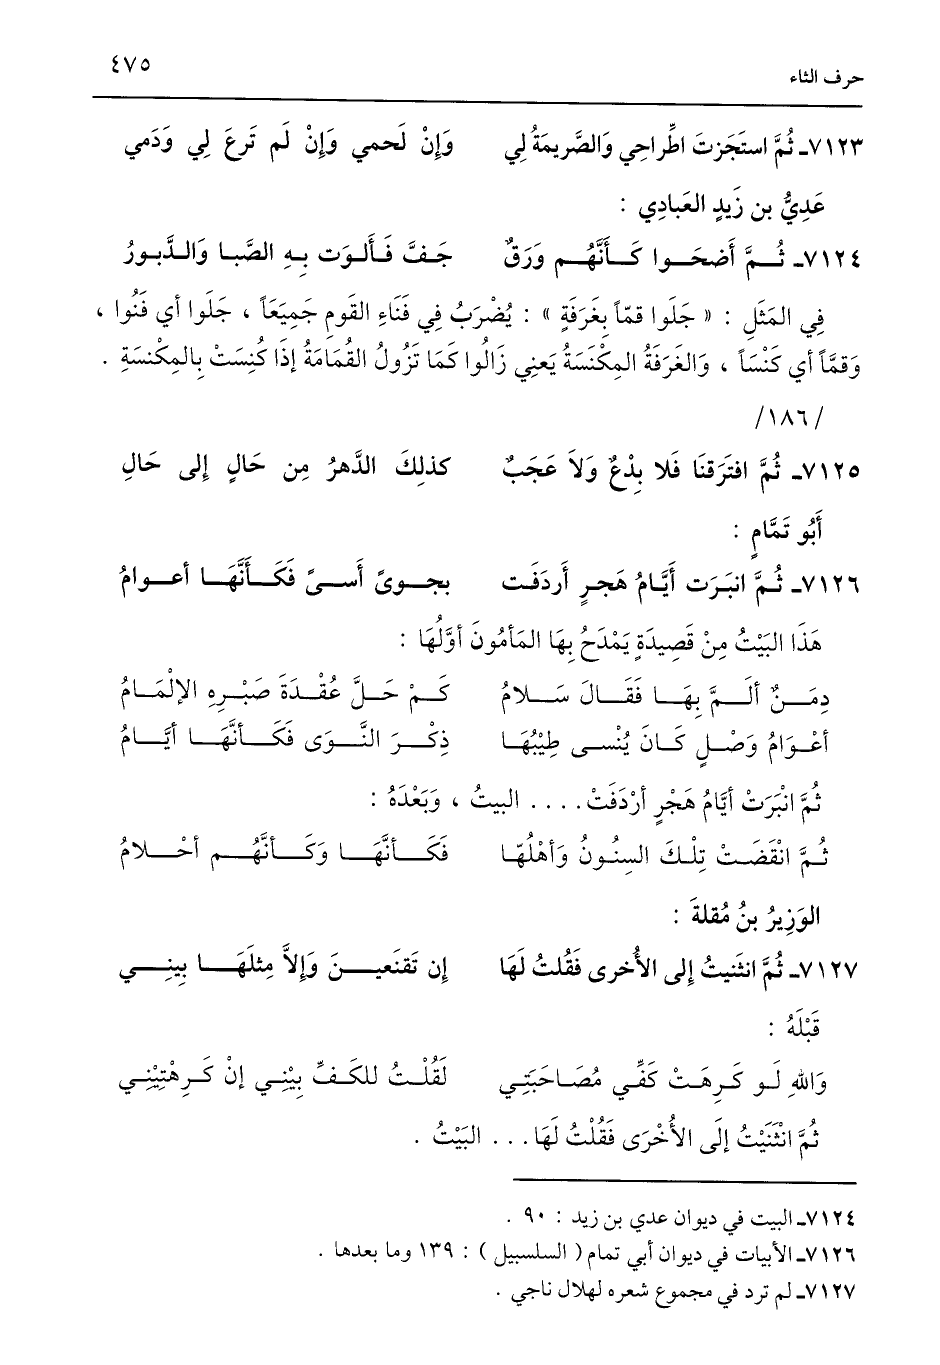 ٤٧٥
حرف الثاء
٧١٢٣ـ ثُمَّ استَجَزتَ اطِّراحِي وَالصَّريمَةُ لِي وَإنْ لَحمي وَإنْ لَم تَرعَ لِي وَدَمي
عَدِيُّ بن زَيدٍ العَبادِي :
٧١٢٤ـ ثُـمَّ أَضحَـوا كَـأَنَّهُـم وَرَقٌ جَـفَّ فَـأَلـوَت بِـهِ الصَّبـا وَالـدَّبـورُ
فِي المَثَلِ : « جَلَوا قمّاً بِغَرفَةٍ » : يُضْرَبُ فِي فَنَاءِ القَومِ جَمِيَعَاً ، جَلَوا أي فَنُوا ،
وَقمَّاً أي كَنْسَاً ، وَالغَرفَةُ المِكْنسَةُ يَعنِي زَالُوا كَمَا تَزُولُ القُمَامَةُ إذَا كُنِسَتْ بِالمِكْنسَةِ .
/١٨٦/
٧١٢٥ـ ثُمَّ افتَرَقنَا فَلا بِدْعٌ وَلاَ عَجَبٌ كذلِكَ الدَّهرُ مِن حَالٍ إلى حَالِ
أَبُو تَمَّامٍ :
٧١٢٦ـ ثُـمَّ انبَرَت أَيَّامُ هَجرٍ أَردَفَت بجـوىً أَسـىً فَكَـأَنَّهَـا أعـوامُ
هَذَا البَيْتُ مِنْ قَصِيدَةٍ يَمْدَحُ بِهَا المَأمُونَ أوَّلُهَا :
دِمَـنٌ ألَـمَّ بِهَـا فَقَـالَ سَـلامُ كَـمْ حَـلَّ عُقْـدَةَ صَبْـرِهِ الإلْمَـامُ
أعْـوَامُ وَصْـلٍ كَـانَ يُنْسـى طِيْبُهَـا ذِكْـرَ النَّـوَى فَكَـأنَّهَـا أيَّـامُ
ثُمَّ انْبَرَتْ أيَّامُ هَجْرٍ أرْدَفَتْ.... البيتُ ، وَبَعْدَهُ :
ثُـمَّ انْقَضَـتْ تِلْـكَ السِنُـونُ وَأهْلُهَـا فَكَـأنَّهَـا وَكَـأنَّهُـم أحْـلامُ
الوَزِيرُ بنُ مُقلةَ :
٧١٢٧ـ ثُمَّ انثَنيتُ إِلى الأُخرى فَقُلتُ لَهَا إن تَقنَعيـنَ وَإلاَّ مِثلَهَـا بِينـي
قَبْلَهُ :
وَاللهِ لَـو كَـرِهَـتْ كَفِّـي مُصَـاحَبَتِي لَقُلْـتُ للكَـفِّ بِيْنِـي إنْ كَـرِهْتِيْنِـي
ثُمَّ انْثَنَيْتُ إلَى الأُخْرَى فَقُلْتُ لَهَا... البَيْتُ .
٧١٢٤ـ البيت في ديوان عدي بن زيد : ٩٠ .
٧١٢٦ـ الأبيات في ديوان أبي تمام ( السلسبيل ) : ١٣٩ وما بعدها .
٧١٢٧ـ لم ترد في مجموع شعره لهلال ناجي .